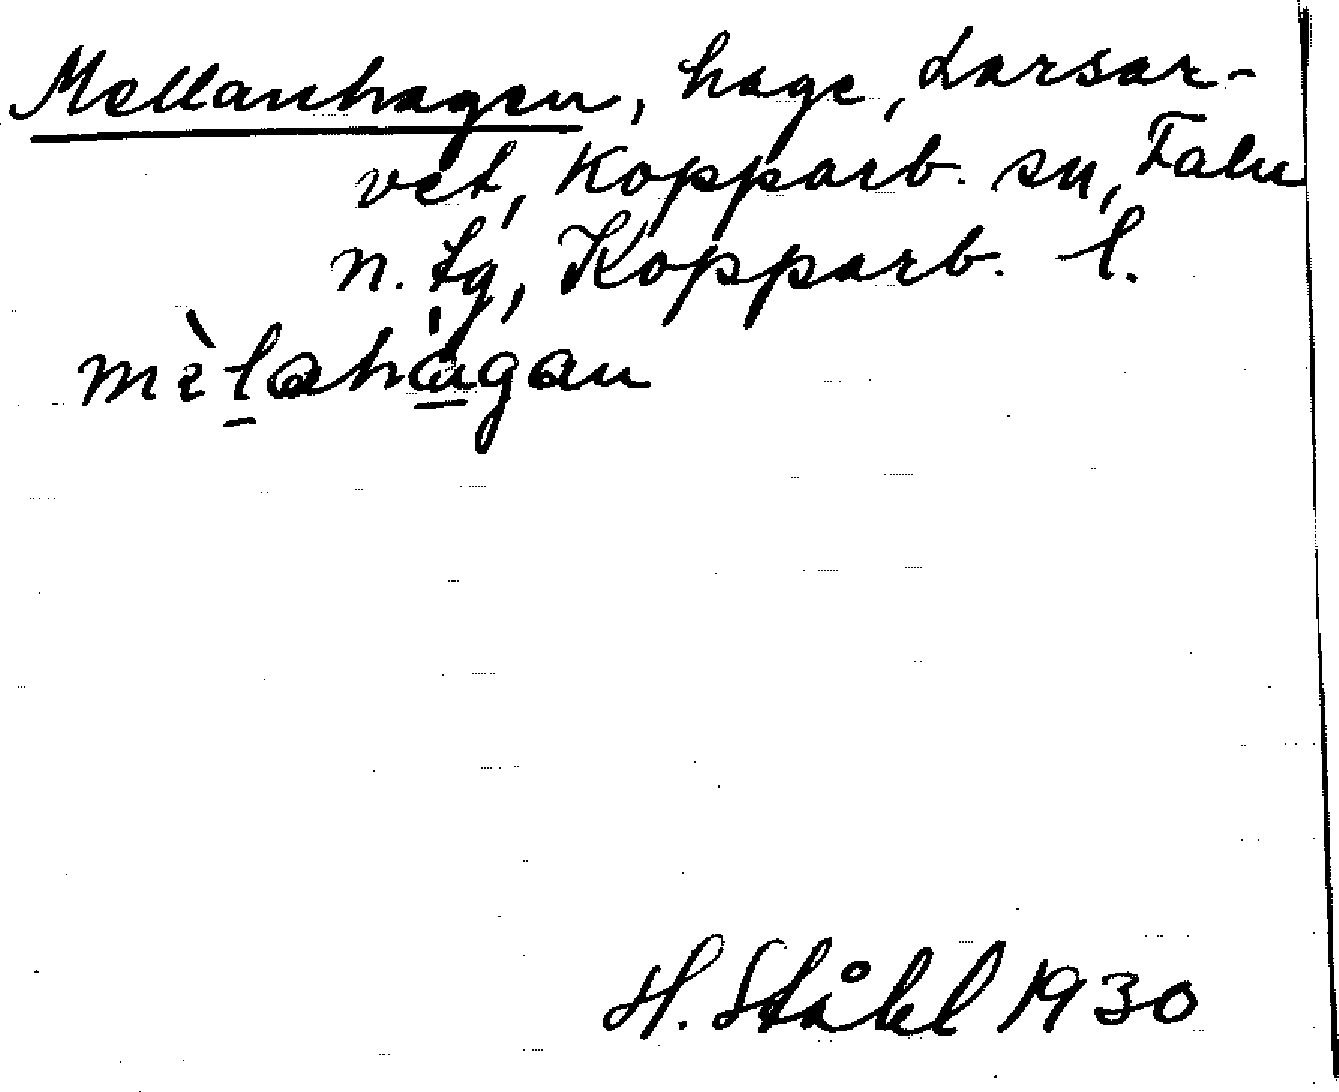 Mellanhagen, hage, Larsar-
vet, Kopparb. sn, Falu
n. tg, Kopparb. l.
mɛ̀lahágan
H. Ståhl 1930